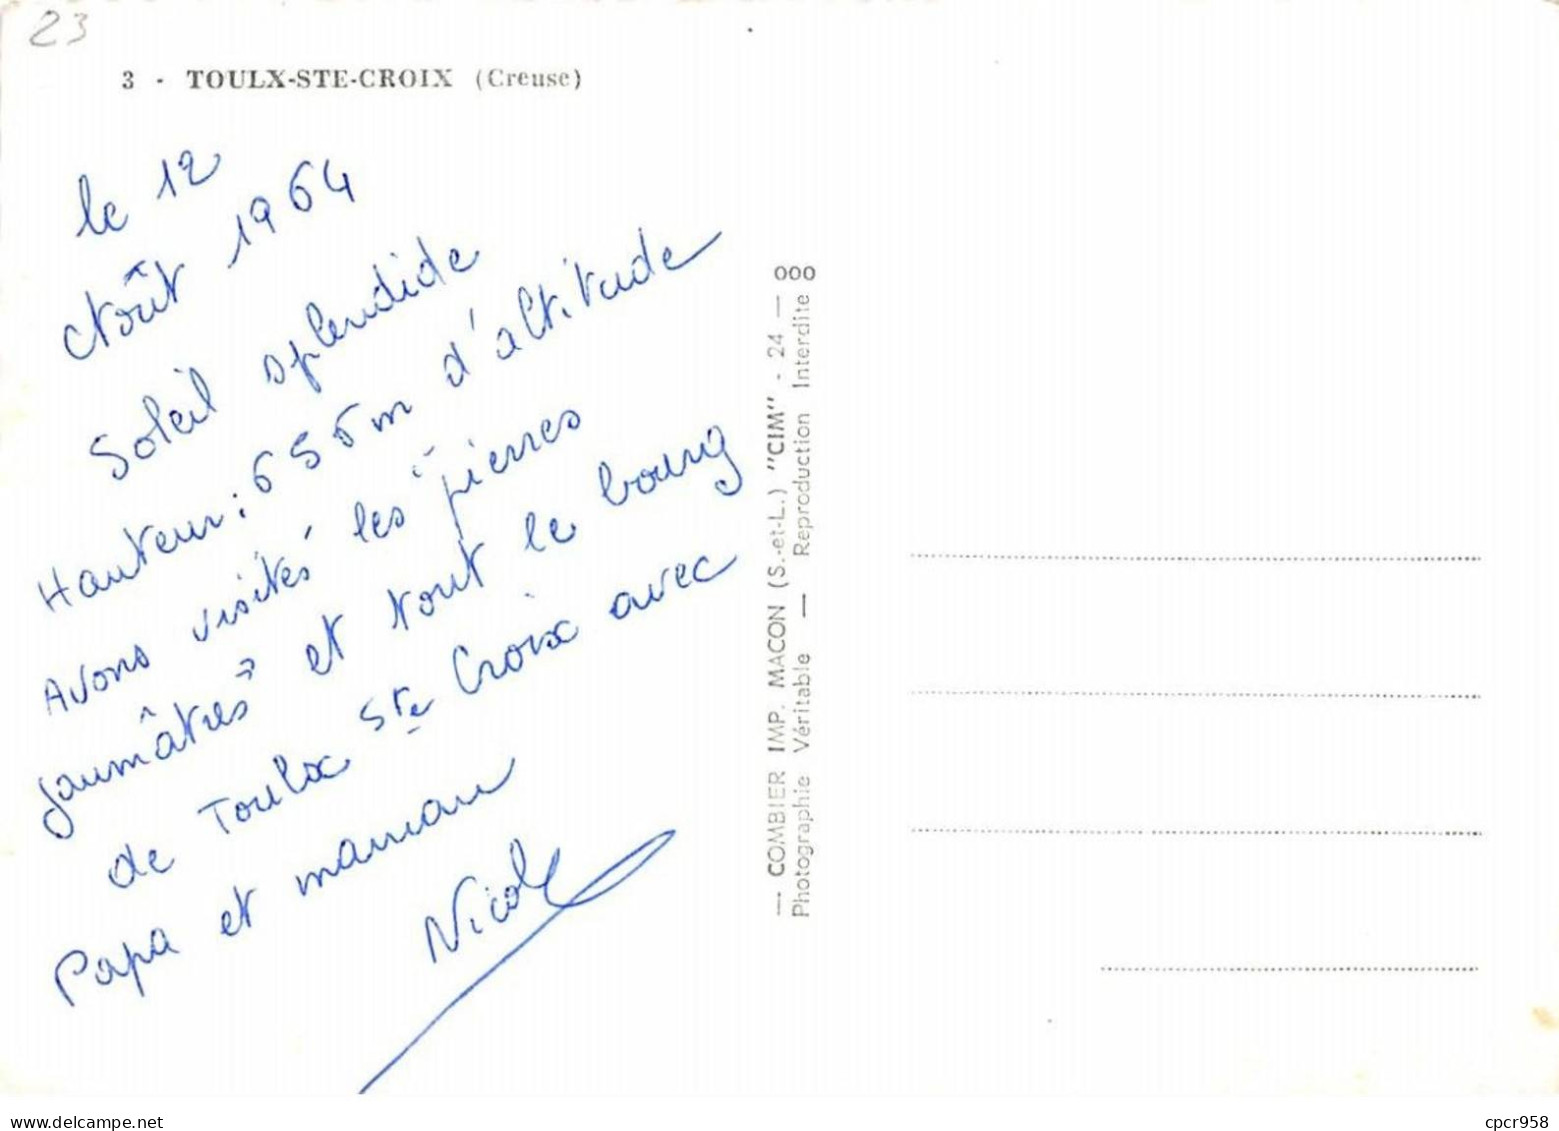 23
3 - TOULX-STE-CROIX (Creuse)
le 12
Août 1964
Soleil splendide
Hauteur : 655m d'altitude
Avons visités les "pierres
jaumâtres" et tout le bourg
de Toulx Ste Croix avec
Papa et maman
Nicole
— COMBIER IMP. MACON (S.-et-L.) "CIM" - 24 — 000
Photographie Véritable — Reproduction Interdite
delcampe.net
cpcr958